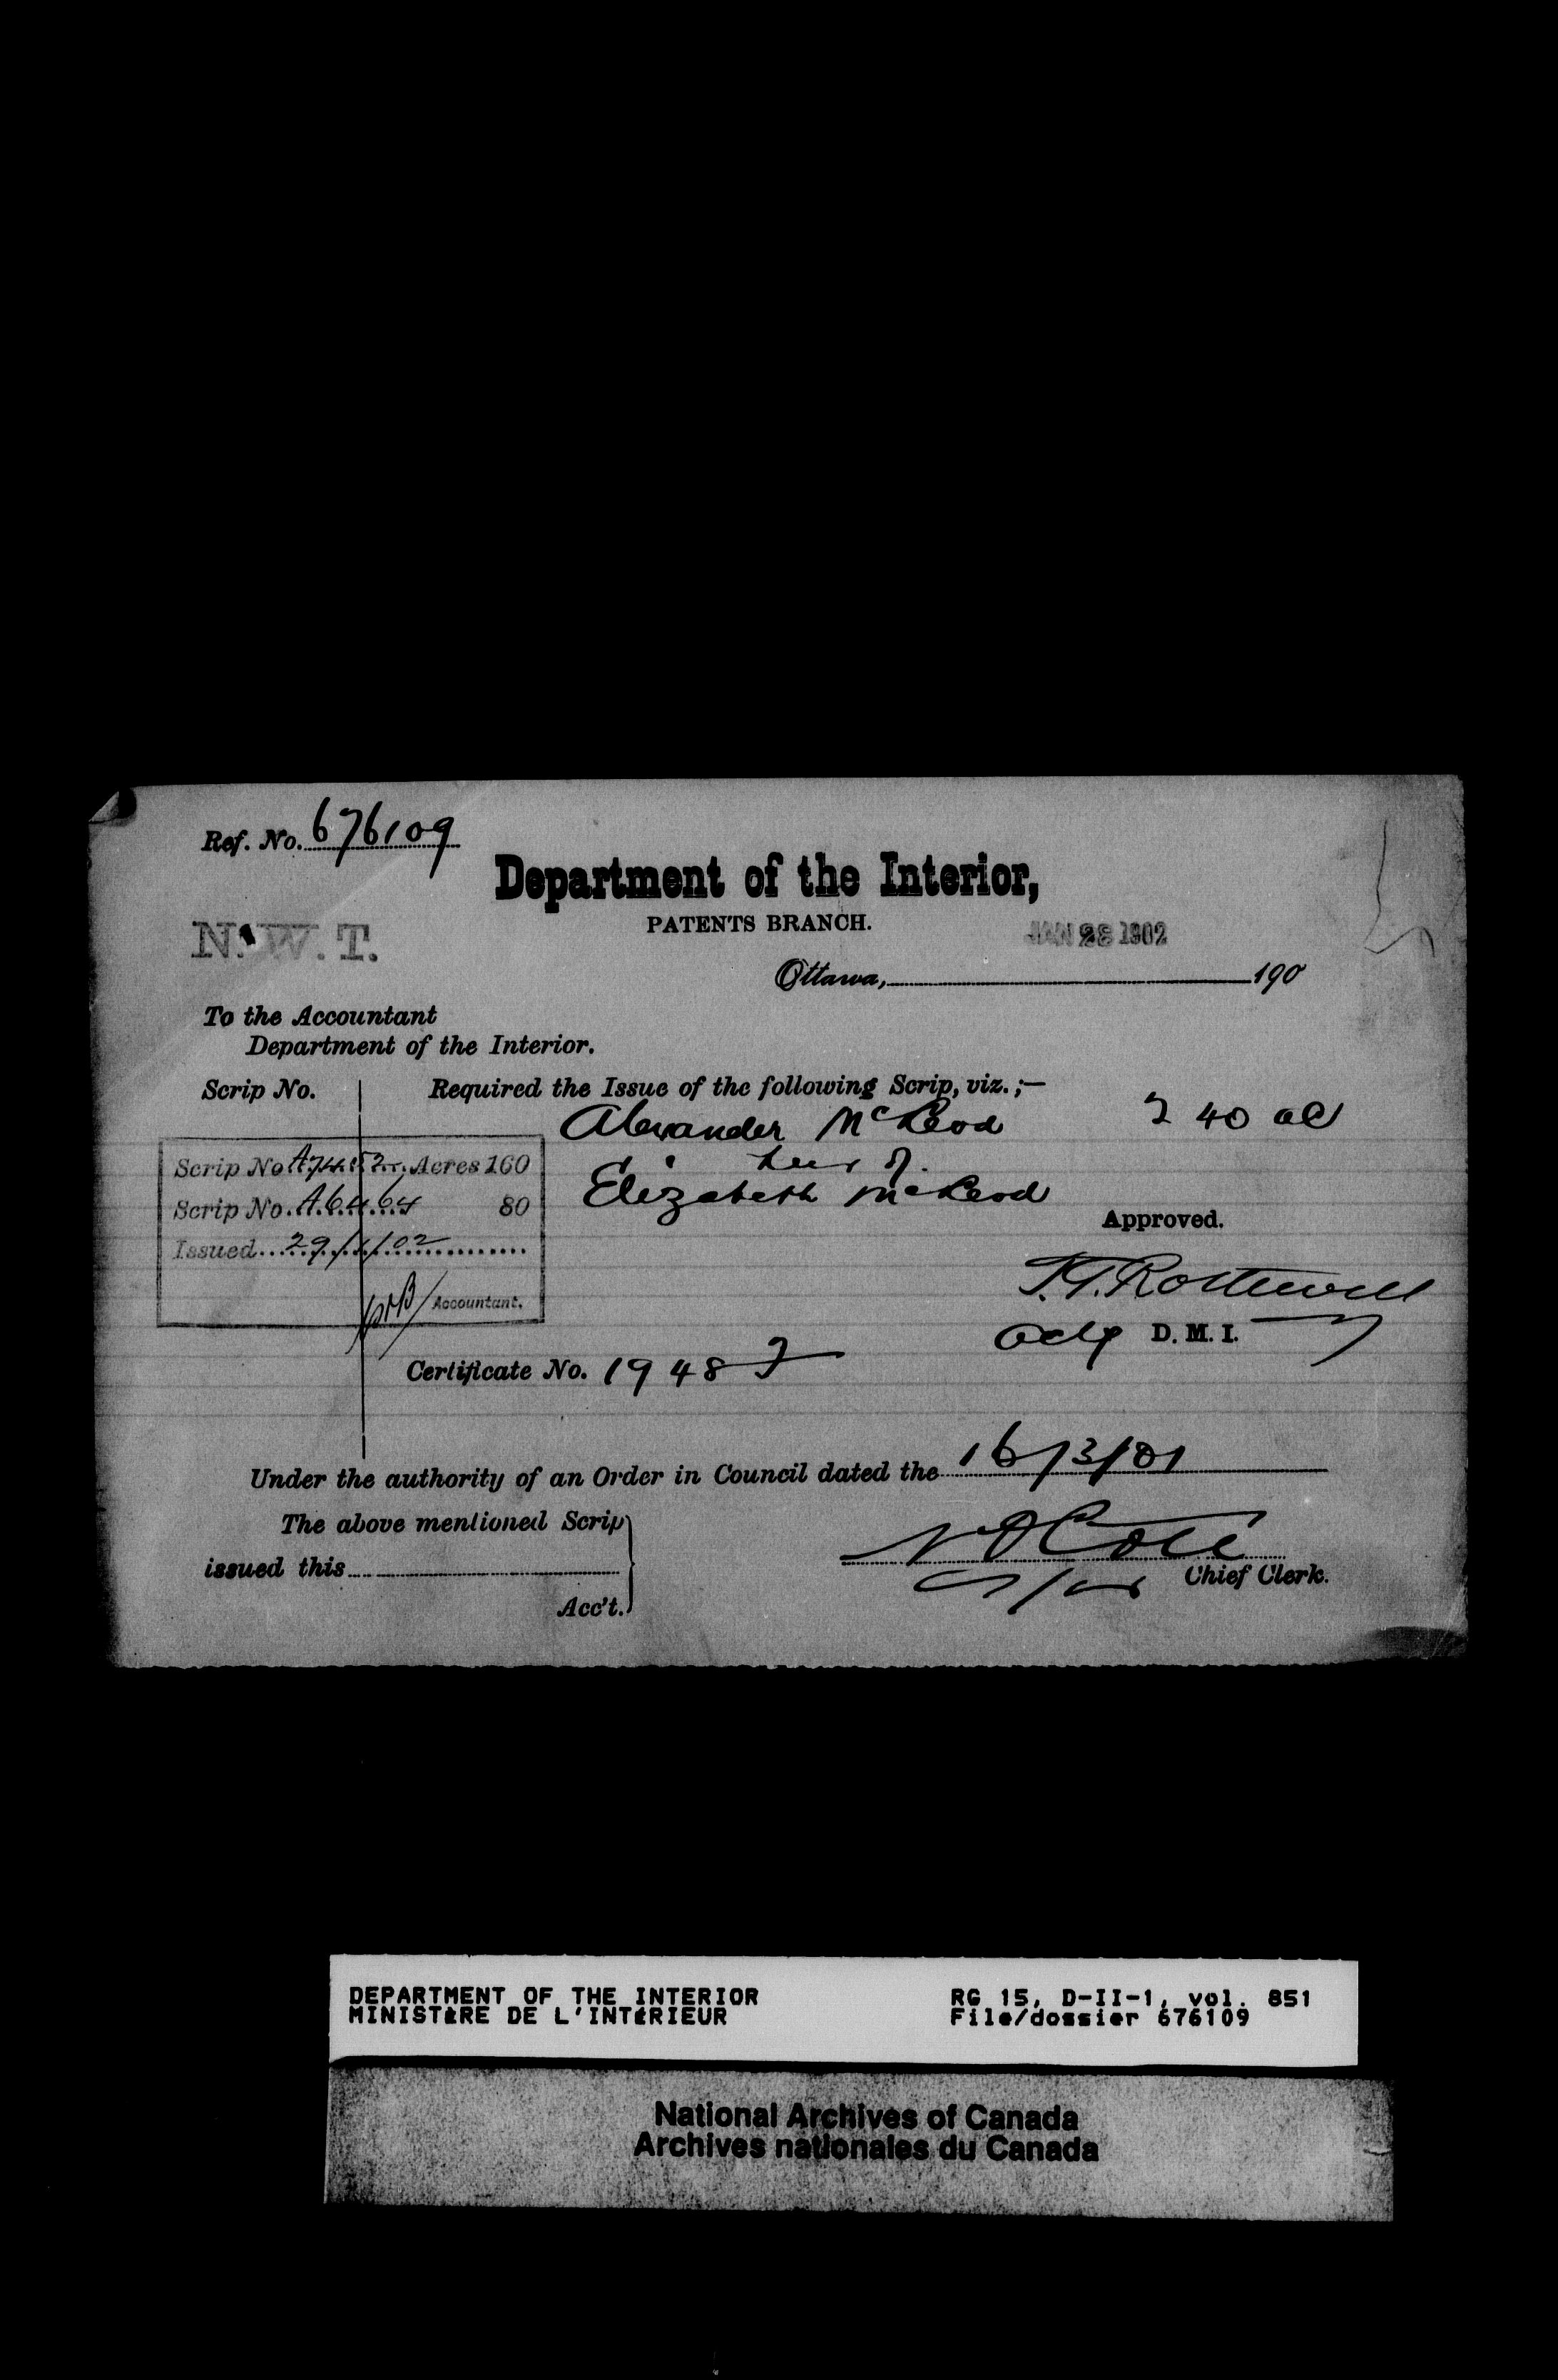 Ref. No. 676109
Department of the Interior,
PATENTS BRANCH.
N.W.T.
JAN 28 1902
Ottawa, 190
To the Accountant
Department of the Interior.
Scrip No.
Required the Issue of the following Scrip, viz.;—
Alexander McLeod 240 ac
heir of
Elizabeth McLeod
Scrip No. A7452 Acres 160
Scrip No. A6464 80
Issued 29/1/02
Accountant.
Approved.
Actg D. M. I.
Certificate No. 1948
Under the authority of an Order in Council dated the 16/3/01
The above mentioned Scrip
issued this
Acc't.
N O Cote
Chief Clerk.
DEPARTMENT OF THE INTERIOR
MINISTÈRE DE L'INTÉRIEUR
RG 15, D-II-1, vol. 851
File/dossier 676109
National Archives of Canada
Archives nationales du Canada